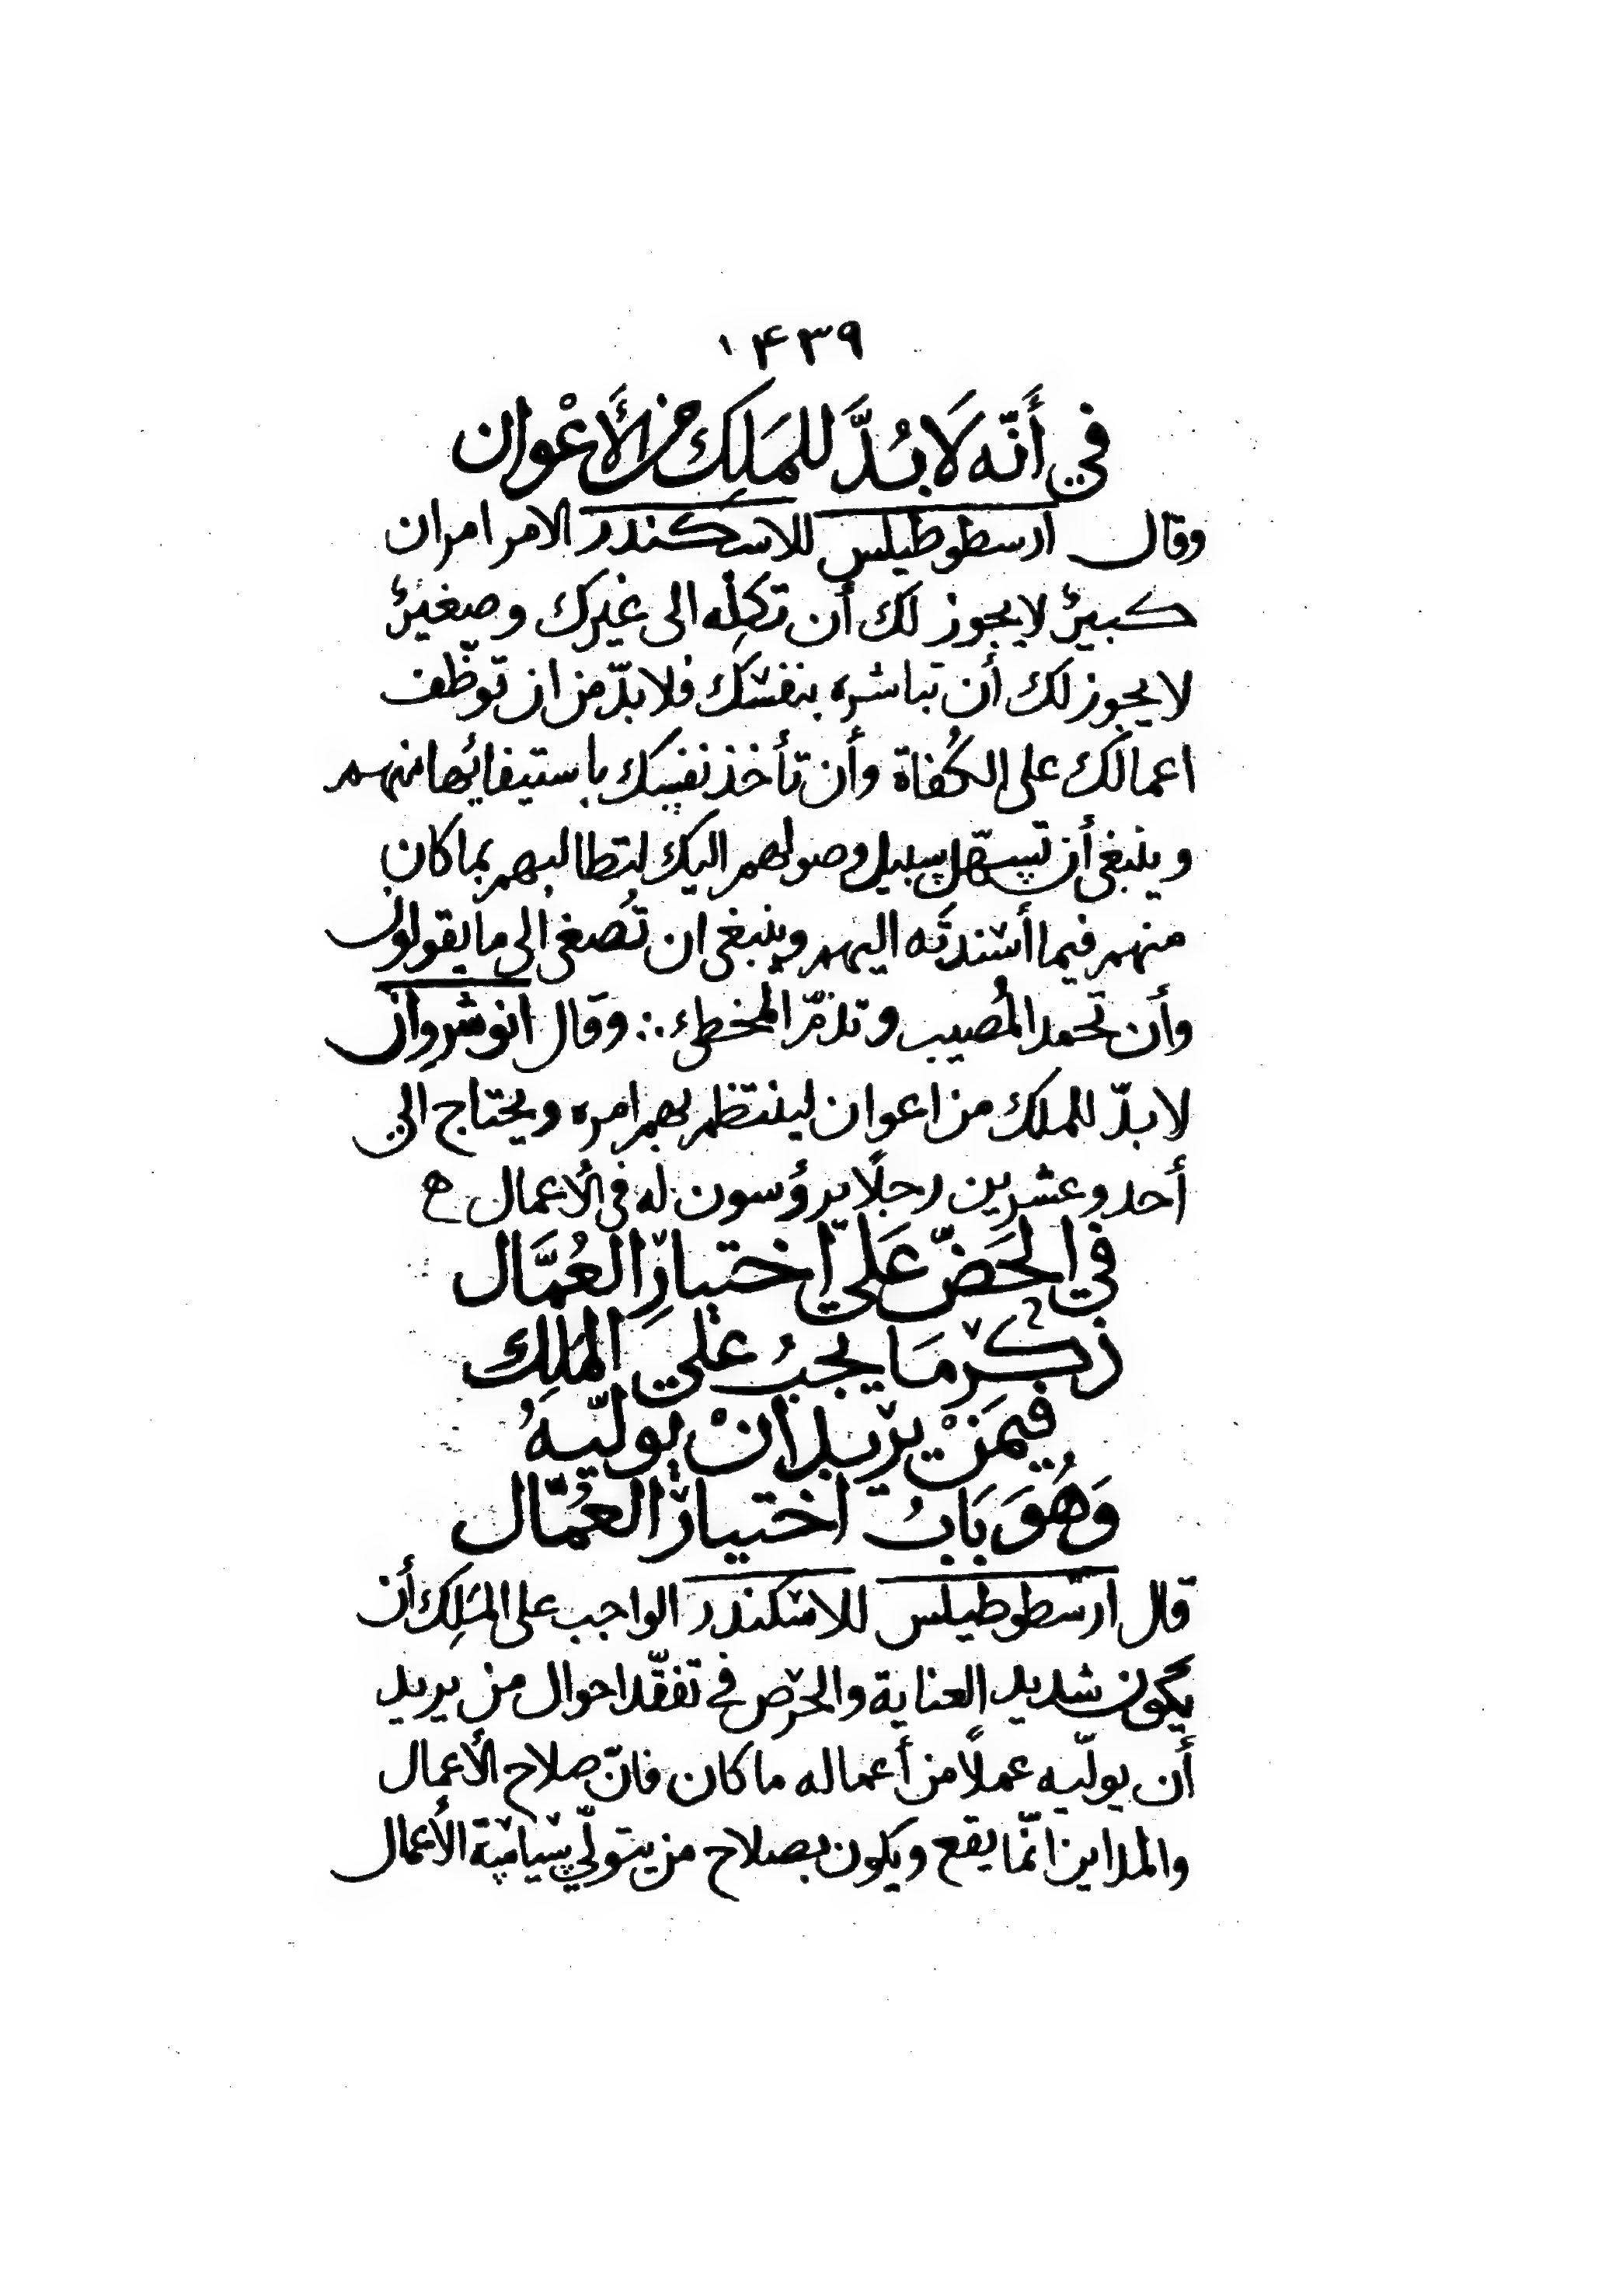 ١۴٣٩
في أَنَّه لَا بُدَّ للمَلِك من الأَعْوان
وقال ارسطوطيلس للاسكندر الامر امران
كبيرٌ لا يجوز لك أن تكِله الى غيرك وصغيرٌ
لا يجوز لك أن تباشره بنفسك فلا بدّ من ان توظّف
اعمالك على الكُفاة وأن تأخذ نفسك باستيفائها منهم
وينبغي أن تسهّل سبيل وصولهم اليك لتطالبهم بما كان
منهم فيما أسندتَه اليهم وينبغي ان تُصغي الى ما يقولون
وأن تحمد المُصيب وتذمّ المخطئ ∴ وقال انوشروان
لا بدّ للملك من اعوان لينتظم بهم امره ويحتاج الي
أحد وعشرين رجلًا يرؤسون له في الأعمال ه
في الحَضّ عَلَى اختيارِ العُمَّال
ذكر مَا يجبُ عَلى المَلِك
فيمَنْ يريد انْ يوليّهُ
وَهُوَ بَابُ اختيار العُمّال
قال ارسطوطيلس للاسكندر الواجب على المَلِك أن
يكون شديد العناية والحرص في تفقّد احوال من يريد
أن يوليّه عملًا من أعماله ما كان فانّ صلاح الأعمال
والمداين انّما يقع ويكون بصلاح من يتولّي سياسة الأعمال